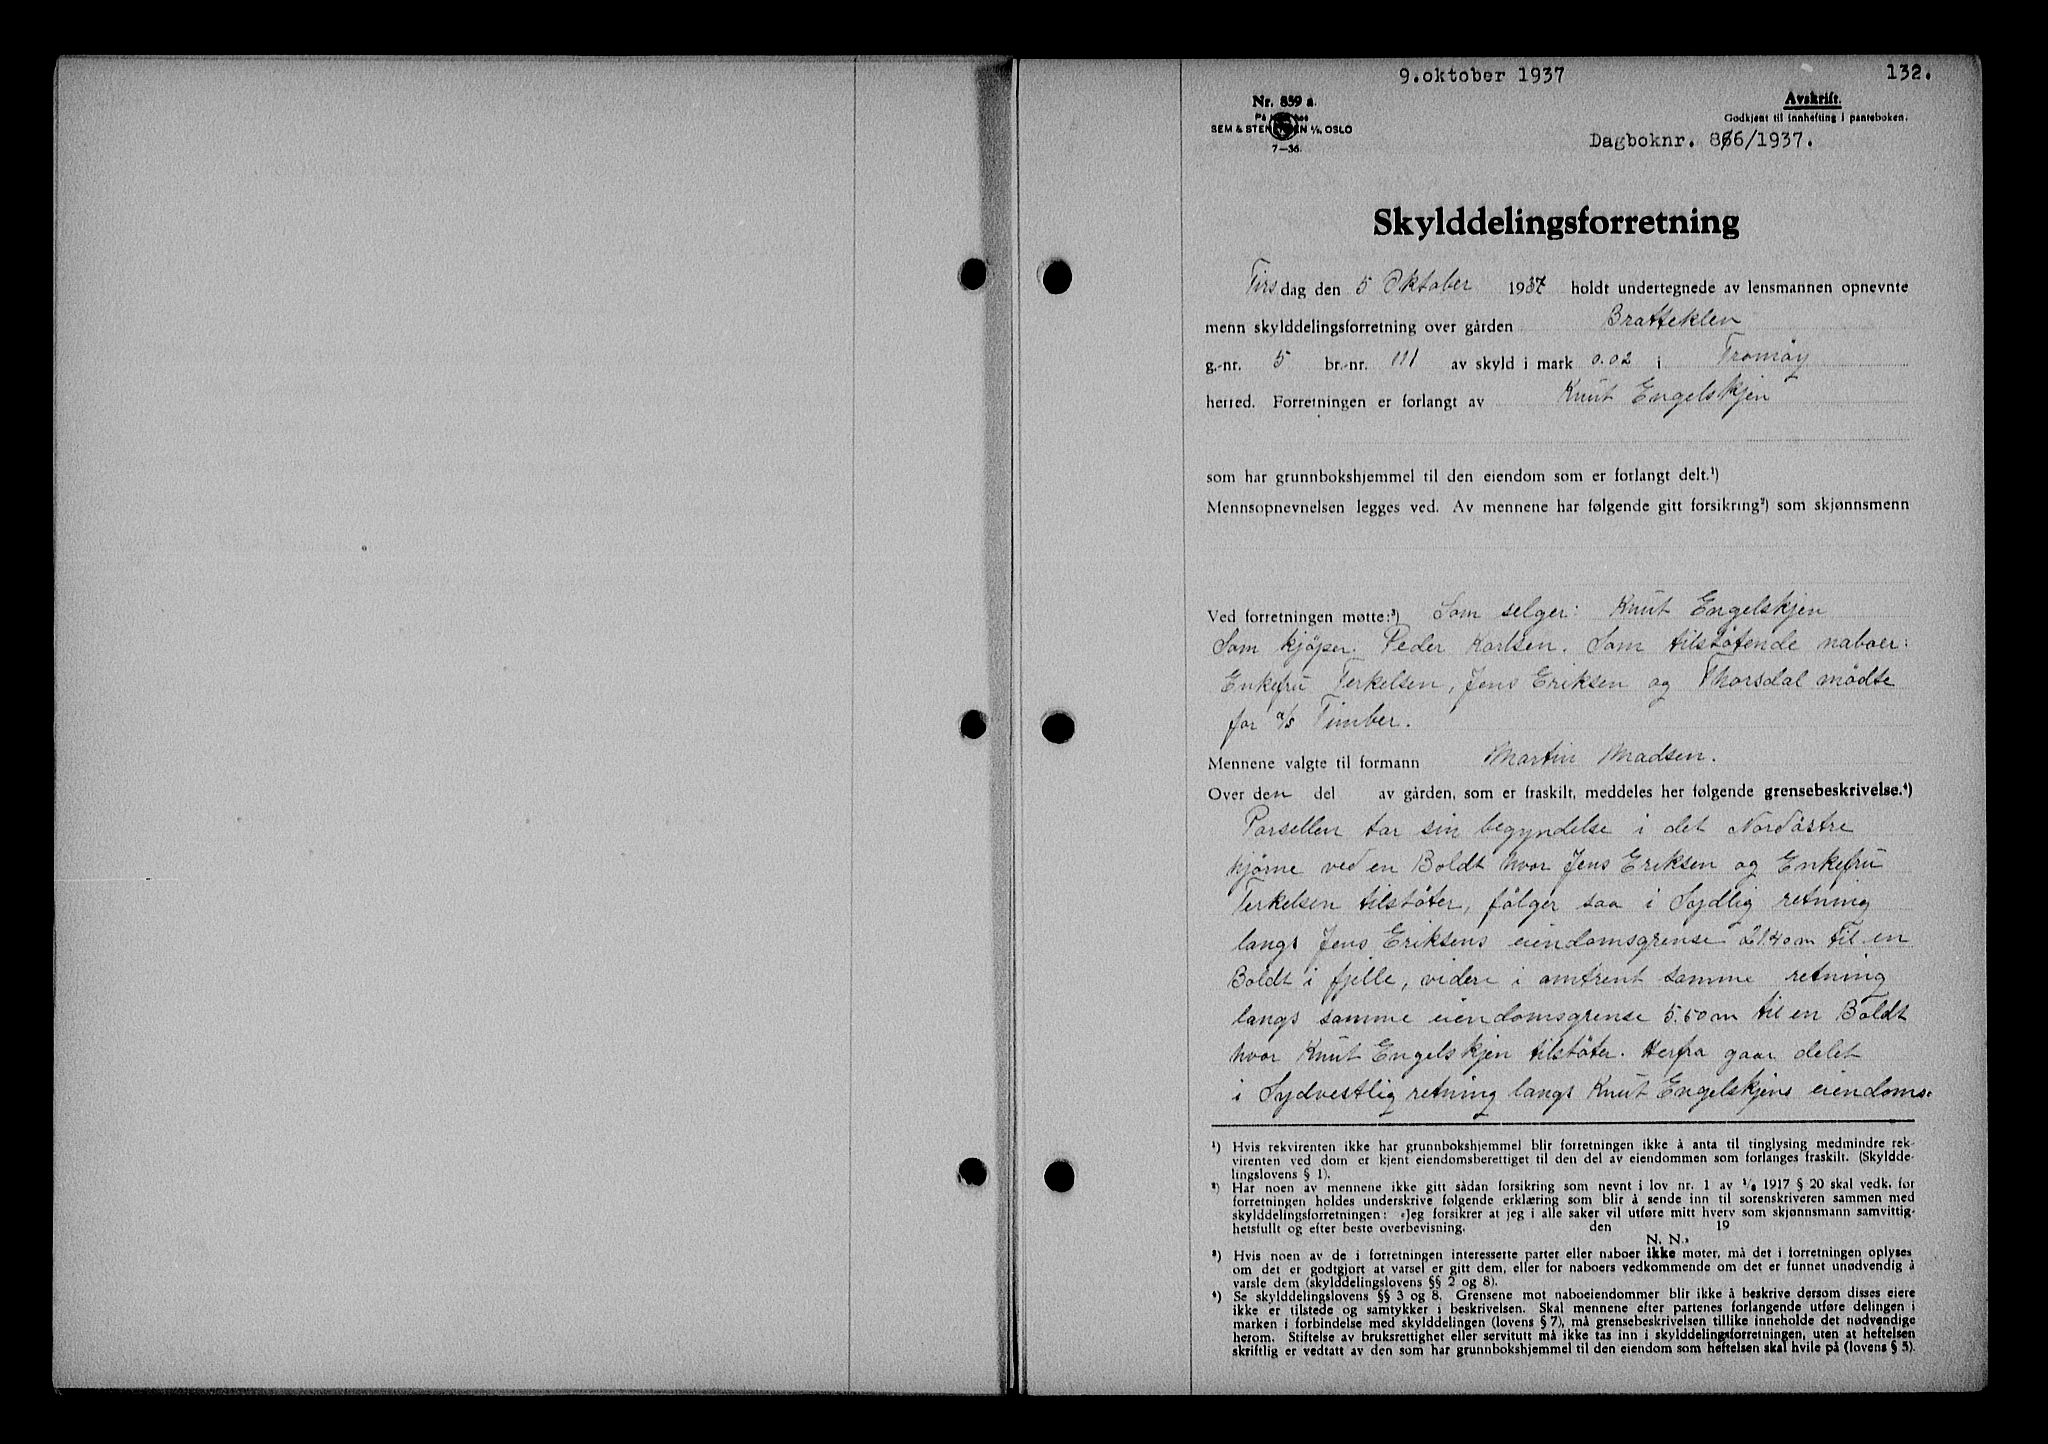 9.oktober 1937
132.
Nr. 859 a.
SEM & STENERSEN A/S, OSLO
7-36.
Avskrift.
Godkjent til innhefting i panteboken.
Dagboknr. 866/1937.
Skylddelingsforretning
Tirsdag den 5 Oktober 1937 holdt undertegnede av lensmannen opnevnte
menn skylddelingsforretning over gården Bratteklev
g.-nr. 5 br.-nr. 111 av skyld i mark 0.02 i Tromøy
herred. Forretningen er forlangt av Knut Engelskjen
som har grunnbokshjemmel til den eiendom som er forlangt delt.¹)
Mennsopnevnelsen legges ved. Av mennene har følgende gitt forsikring²) som skjønnsmenn
Ved forretningen møtte:³) Som selger: Knut Engelskjen
Som kjöper. Peder Karlsen. Som tilstötende naboer:
Enkefru Terkelsen, Jens Eriksen og Thorsdal mödte
for a/s Timber.
Mennene valgte til formann Martin Madsen.
Over den del av gården, som er fraskilt, meddeles her følgende grensebeskrivelse.⁴)
Parsellen tar sin begyndelse i det Nordöstre
hjörne ved en Boldt hvor Jens Eriksen og Enkefru
Terkelsen tilstöter, fölger saa i Sydlig retning
langs Jens Eriksens eiendomsgrense 21.40 m til en
Boldt i fjelle, videre i omtrent samme retning
langs samme eiendomsgrense 5.50 m til en Boldt
hvor Knut Engelskjen tilstöter. Herfra gaar delet
i Sydvestlig retning langs Knut Engelskjens eiendoms-
¹) Hvis rekvirenten ikke har grunnbokshjemmel blir forretningen ikke å anta til tinglysing medmindre rek-
virenten ved dom er kjent eiendomsberettiget til den del av eiendommen som forlanges fraskilt. (Skyldde-
lingslovens § 1).
²) Har noen av mennene ikke gitt sådan forsikring som nevnt i lov nr. 1 av 1/6 1917 § 20 skal vedk. før
forretningen holdes underskrive følgende erklæring som blir å sende inn til sorenskriveren sammen med
skylddelingsforretningen: «Jeg forsikrer at jeg i alle saker vil utføre mitt hverv som skjønnsmann samvittig-
hetsfullt og efter beste overbevisning. den 19
N. N.»
³) Hvis noen av de i forretningen interesserte parter eller naboer ikke møter, må det i forretningen oplyses
om det er godtgjort at varsel er gitt dem, eller for naboers vedkommende om det er funnet unødvendig å
varsle dem (skylddelingslovens §§ 2 og 8).
⁴) Se skylddelingslovens §§ 3 og 8. Grensene mot naboeiendommer blir ikke å beskrive dersom disses eiere
ikke er tilstede og samtykker i beskrivelsen. Skal mennene efter partenes forlangende utføre delingen i
marken i forbindelse med skylddelingen (lovens § 7), må grensebeskrivelsen tillike inneholde det nødvendige
herom. Stiftelse av bruksrettighet eller servitutt må ikke tas inn i skylddelingsforretningen, uten at heftelsen
skriftlig er vedtatt av den som har grunnbokshjemmel til den eiendom som heftelsen skal hvile på (lovens § 5).